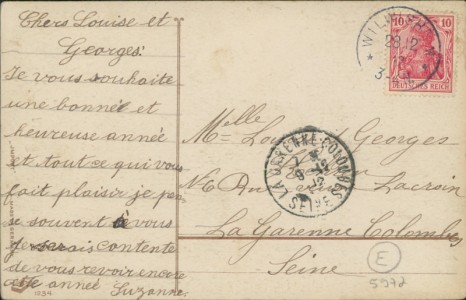 Chers Louise et
Georges:
Je vous souhaite
une bonne et
heureuse année
et tout ce qui vous
fait plaisir je pen
se souvent à vous
je serais contente
de vous revoir encore
cette année Suzanne
1234
Mlle
Mme Lou Georges
Lacroix
La Garenne Colombes
Seine
10 10
DEUTSCHES REICH
* WILWISCH
28.12
3-4
LA GARENNE-COLOMBES
SEINE
E
5972